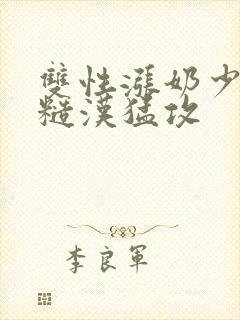 雙性漲奶少
糙漢猛攻
李良軍